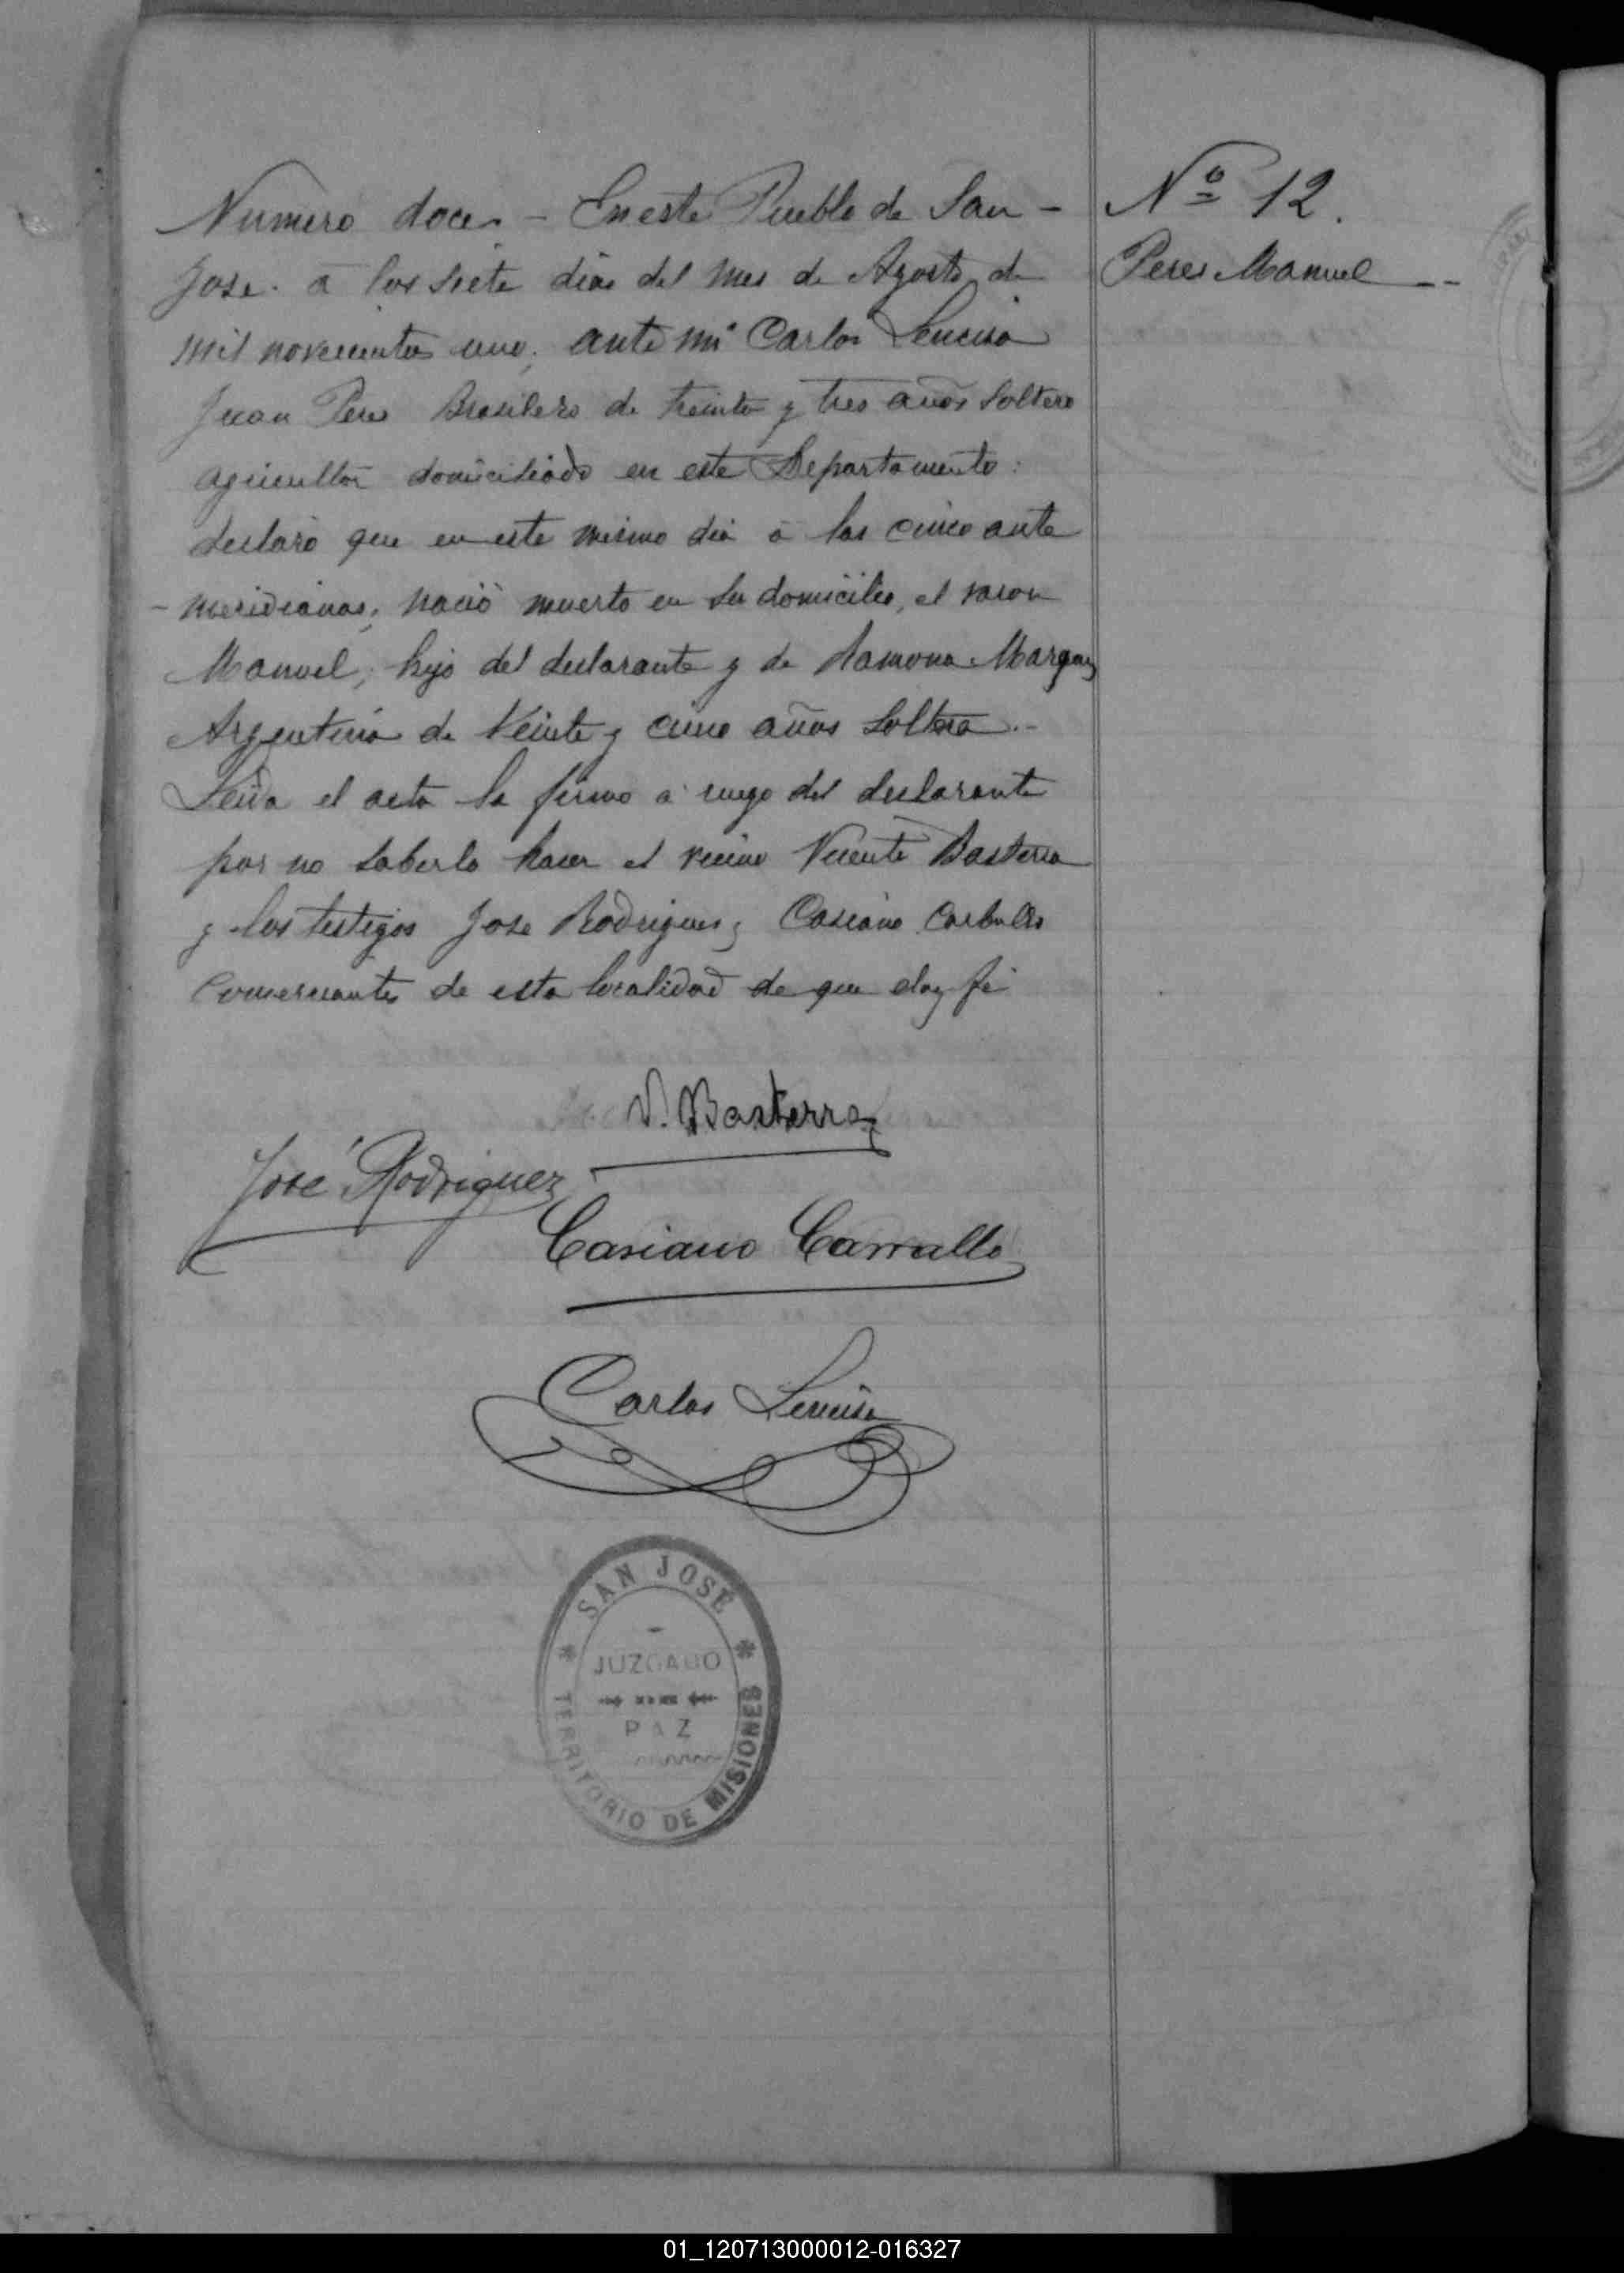 Numero doce. - En este Pueblo de San -
Jose. a los siete dias del mes de Agosto de
mil novecientos uno, ante mi Carlos Lencisa
Juan Peres Brasilero de treinta y tres años soltero
agricultor domiciliado en este Departamento:
declaro que en este mismo dia a las cinco ante
- meridianas, nació muerto en su domicilio, el varon
Manuel, hijo del declarante y de Ramona
Argentina de veinte y cinco años soltera. -
Leida el acta la firmo a ruego del declarante
por no saberlo hacer el vecino Vicente Basterra
y los testigos Jose Rodrigues y Casiano Carballo
comerciantes de esta localidad de que doy fé
V. Basterra
José Rodriguez
Casiano Carvallo
Carlos Lencisa
SAN JOSÉ
JUZGADO
PAZ
TERRITORIO DE MISIONES
Nº 12.
Peres Manuel --
01_120713000012-016327